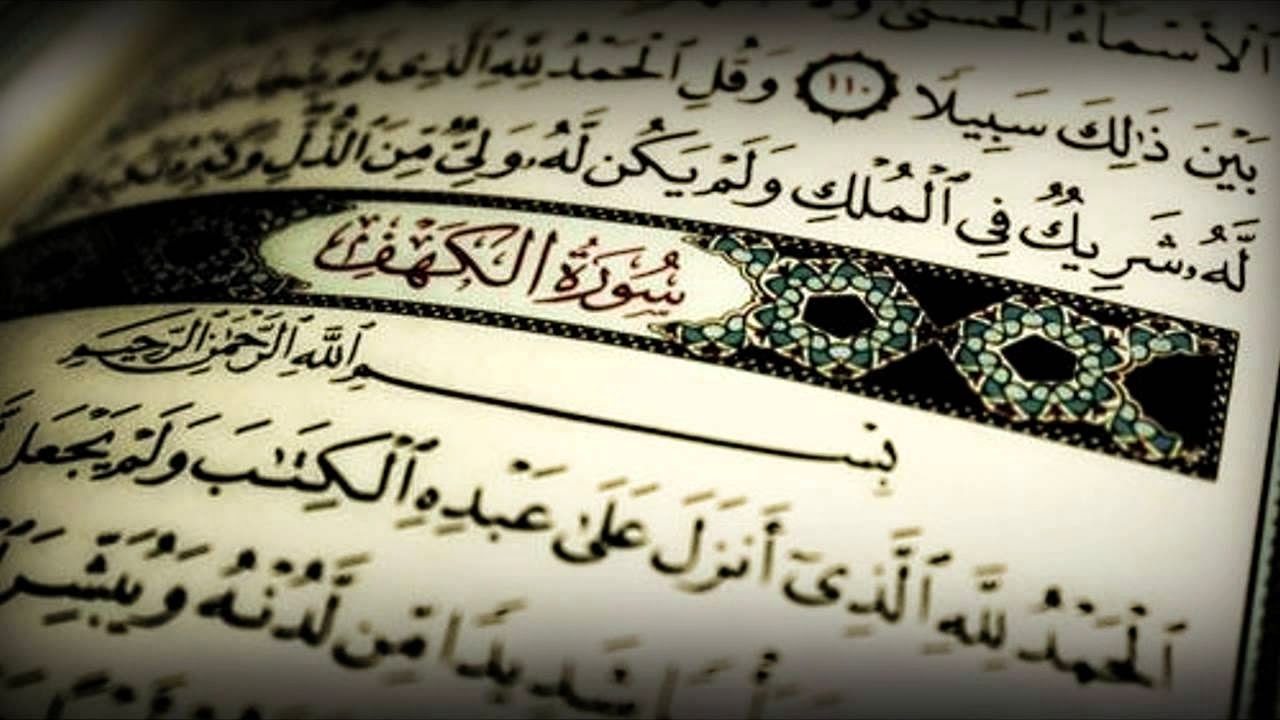 ٱلْأَسْمَآءُ ٱلْحُسْنَىٰ
بَيْنَ ذَٰلِكَ سَبِيلًا ١١٠ وَقُلِ ٱلْحَمْدُ لِلَّهِ ٱلَّذِى لَمْ يَتَّخِذْ
لَّهُۥ شَرِيكٌ فِى ٱلْمُلْكِ وَلَمْ يَكُن لَّهُۥ وَلِىٌّ مِّنَ ٱلذُّلِّ وَكَبِّرْهُ تَكْبِيرًا
سُورَةُ الكَهْفِ
بِسْمِ ٱللَّهِ ٱلرَّحْمَٰنِ ٱلرَّحِيمِ
ٱلْحَمْدُ لِلَّهِ ٱلَّذِىٓ أَنزَلَ عَلَىٰ عَبْدِهِ ٱلْكِتَٰبَ وَلَمْ يَجْعَل
بَأْسًا شَدِيدًا مِّن لَّدُنْهُ وَيُبَشِّرَ